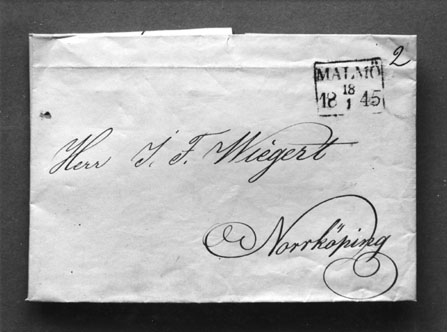 2
MALMÖ
18
18 1 45
Herr J. F. Wiegert
Norrköping